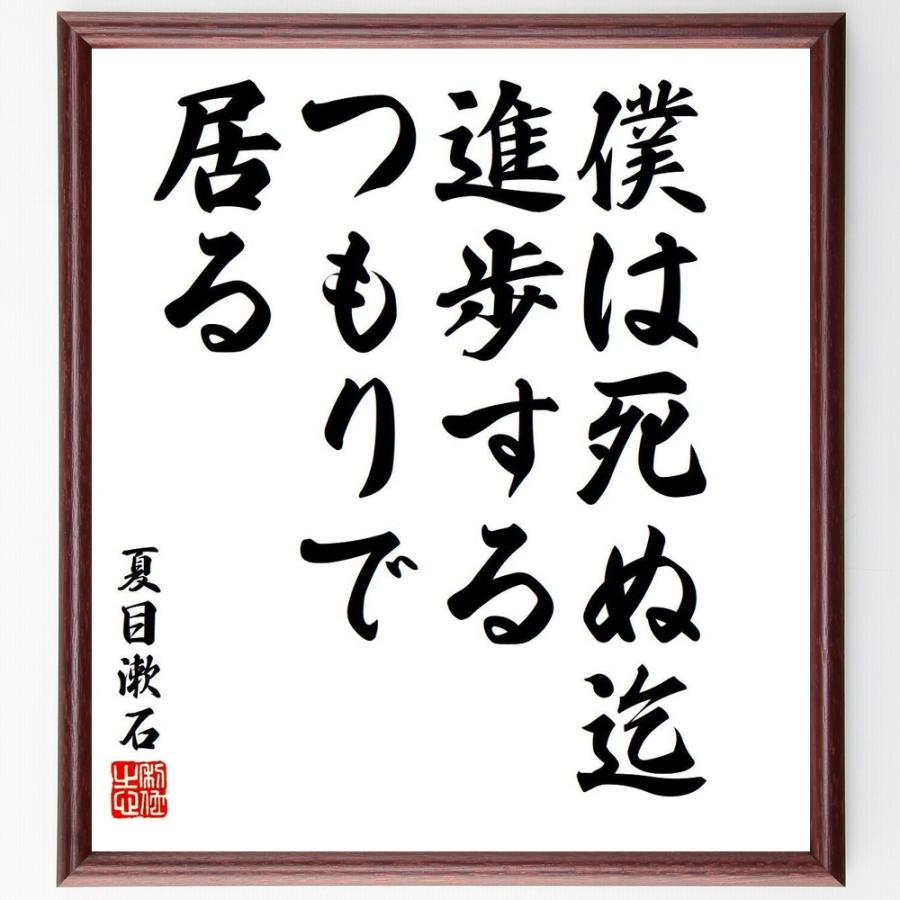 僕は死ぬ迄
進歩する
つもりで
居る
夏目漱石